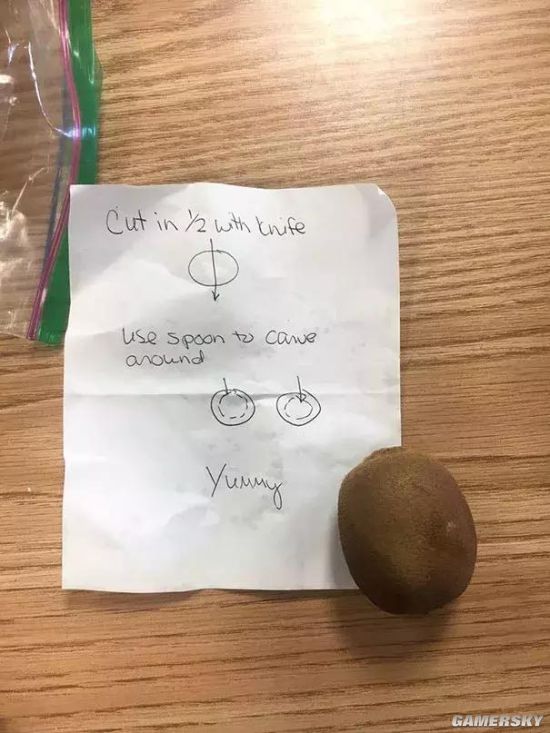 Cut in 1/2 with knife
use spoon to carve
around
Yummy
GAMERSKY